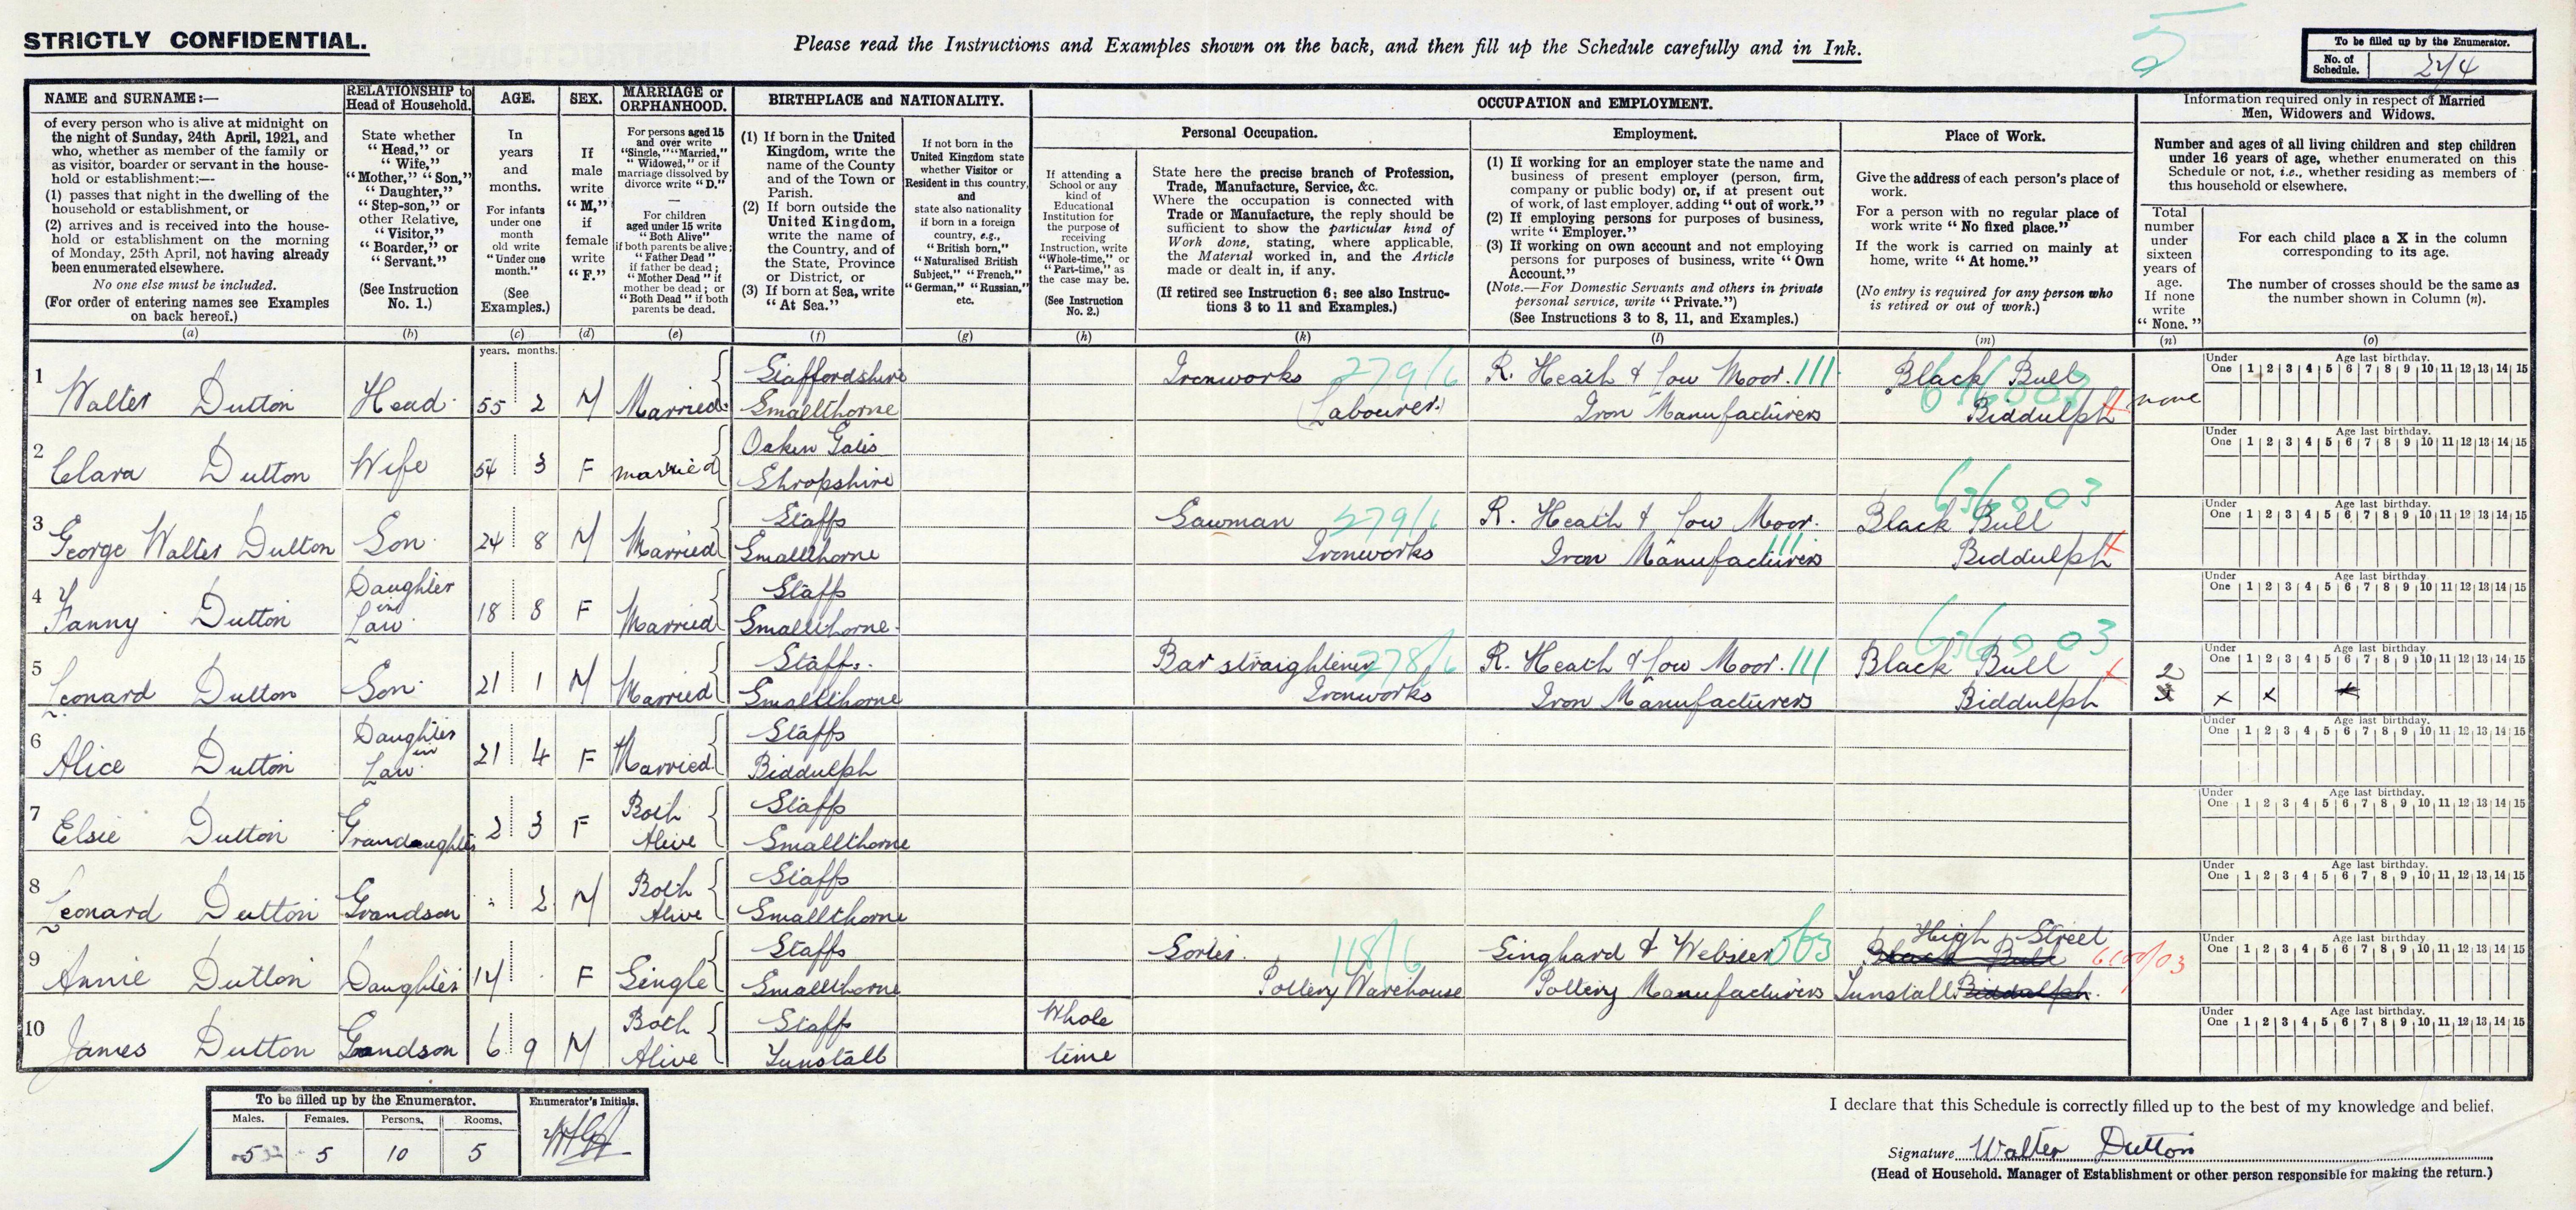 STRICTLY CONFIDENTIAL.
Please read the Instructions and Examples shown on the back, and then fill up the Schedule carefully and in Ink.
To be filled up by the Enumerator.
No. of Schedule. 274
NAME and SURNAME:—
of every person who is alive at midnight on
the night of Sunday, 24th April, 1921, and
who, whether as member of the family or
as visitor, boarder or servant in the house-
hold or establishment:—
(1) passes that night in the dwelling of the
household or establishment, or
(2) arrives and is received into the house-
hold or establishment on the morning
of Monday, 25th April, not having already
been enumerated elsewhere.
No one else must be included.
(For order of entering names see Examples
on back hereof.)
(a)
RELATIONSHIP to
Head of Household.
State whether
"Head," or
"Wife,"
"Mother," "Son,"
"Daughter,"
"Step-son," or
other Relative,
"Visitor,"
"Boarder," or
"Servant."
(See Instruction
No. 1.)
(b)
AGE.
In
years
and
months.
For infants
under one
month
old write
"Under one
month."
(See
Examples.)
(c)
SEX.
If
male
write
"M,"
if
female
write
"F."
(d)
MARRIAGE or
ORPHANHOOD.
For persons aged 15
and over write
"Single," "Married,"
"Widowed," or if
marriage dissolved by
divorce write "D."
For children
aged under 15 write
"Both Alive"
if both parents be alive;
"Father Dead"
if father be dead;
"Mother Dead" if
mother be dead; or
"Both Dead" if both
parents be dead.
(e)
BIRTHPLACE and NATIONALITY.
(1) If born in the United
Kingdom, write the
name of the County
and of the Town or
Parish.
(2) If born outside the
United Kingdom,
write the name of
the Country, and of
the State, Province
or District, or
(3) If born at Sea, write
"At Sea."
(f)
If not born in the
United Kingdom state
whether Visitor or
Resident in this country,
and
state also nationality
if born in a foreign
country, e.g.,
"British born,"
"Naturalised British
Subject," "French,"
"German," "Russian,"
etc.
(g)
OCCUPATION and EMPLOYMENT.
If attending a
School or any
kind of
Educational
Institution for
the purpose of
receiving
Instruction, write
"Whole-time," or
"Part-time," as
the case may be.
(See Instruction
No. 2.)
(h)
Personal Occupation.
State here the precise branch of Profession,
Trade, Manufacture, Service, &c.
Where the occupation is connected with
Trade or Manufacture, the reply should be
sufficient to show the particular kind of
Work done, stating, where applicable,
the Material worked in, and the Article
made or dealt in, if any.
(If retired see Instruction 6; see also Instruc-
tions 3 to 11 and Examples.)
(k)
Employment.
(1) If working for an employer state the name and
business of present employer (person, firm,
company or public body) or, if at present out
of work, of last employer, adding "out of work."
(2) If employing persons for purposes of business,
write "Employer."
(3) If working on own account and not employing
persons for purposes of business, write "Own
Account."
(Note.—For Domestic Servants and others in private
personal service, write "Private.")
(See Instructions 3 to 8, 11, and Examples.)
(l)
Place of Work.
Give the address of each person's place of
work.
For a person with no regular place of
work write "No fixed place."
If the work is carried on mainly at
home, write "At home."
(No entry is required for any person who
is retired or out of work.)
(m)
Information required only in respect of Married
Men, Widowers and Widows.
Number and ages of all living children and step children
under 16 years of age, whether enumerated on this
Schedule or not, i.e., whether residing as members of
this household or elsewhere.
Total
number
under
sixteen
years of
age.
If none
write
"None."
(n)
For each child place a X in the column
corresponding to its age.
The number of crosses should be the same as
the number shown in Column (n).
(o)
years. months.
Under One Age last birthday. 1 2 3 4 5 6 7 8 9 10 11 12 13 14 15
1 Walter Dutton Head 55 2 M Married Staffordshire Smallthorne Ironworks (Labourer.) 279/6 R. Heath & Low Moor. 111 Iron Manufacturers Black Bull Biddulph none
2 Clara Dutton Wife 54 3 F married Oaken Gates Shropshire
3 George Walter Dutton Son 24 8 M Married Staffs Smallthorne Sawman Ironworks 279/6 R. Heath & Low Moor. Iron Manufacturers 111 Black Bull Biddulph
4 Fanny Dutton Daughter in Law 18 8 F Married Staffs Smallthorne
5 Leonard Dutton Son 21 1 M Married Staffs. Smallthorne Bar straightener Ironworks 278/6 R. Heath & Low Moor. 111 Iron Manufacturers Black Bull Biddulph 2 x x
6 Alice Dutton Daughter in Law 21 4 F Married Staffs Biddulph
7 Elsie Dutton Grandaughter 2 3 F Both Alive Staffs Smallthorne
8 Leonard Dutton Grandson 2 M Both Alive Staffs Smallthorne
9 Annie Dutton Daughter 14 F Single Staffs Smallthorne Sorter. Pottery Warehouse 118/6 & Webster Pottery Manufacturers High Street Black Bull Tunstall Biddulph.
10 James Dutton Grandson 6 9 M Both Alive Staffs Tunstall Whole time
To be filled up by the Enumerator.
Males. Females. Persons. Rooms.
5 5 10 5
Enumerator's Initials.
I declare that this Schedule is correctly filled up to the best of my knowledge and belief.
Signature Walter Dutton
(Head of Household, Manager of Establishment or other person responsible for making the return.)